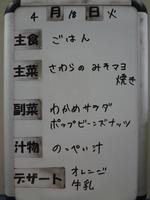 4月18日火
主食 ごはん
主菜 さわらのみそマヨ
焼き
副菜 わかめサラダ
ポップビーンズナッツ
汁物 のっぺい汁
デザート オレンジ
牛乳